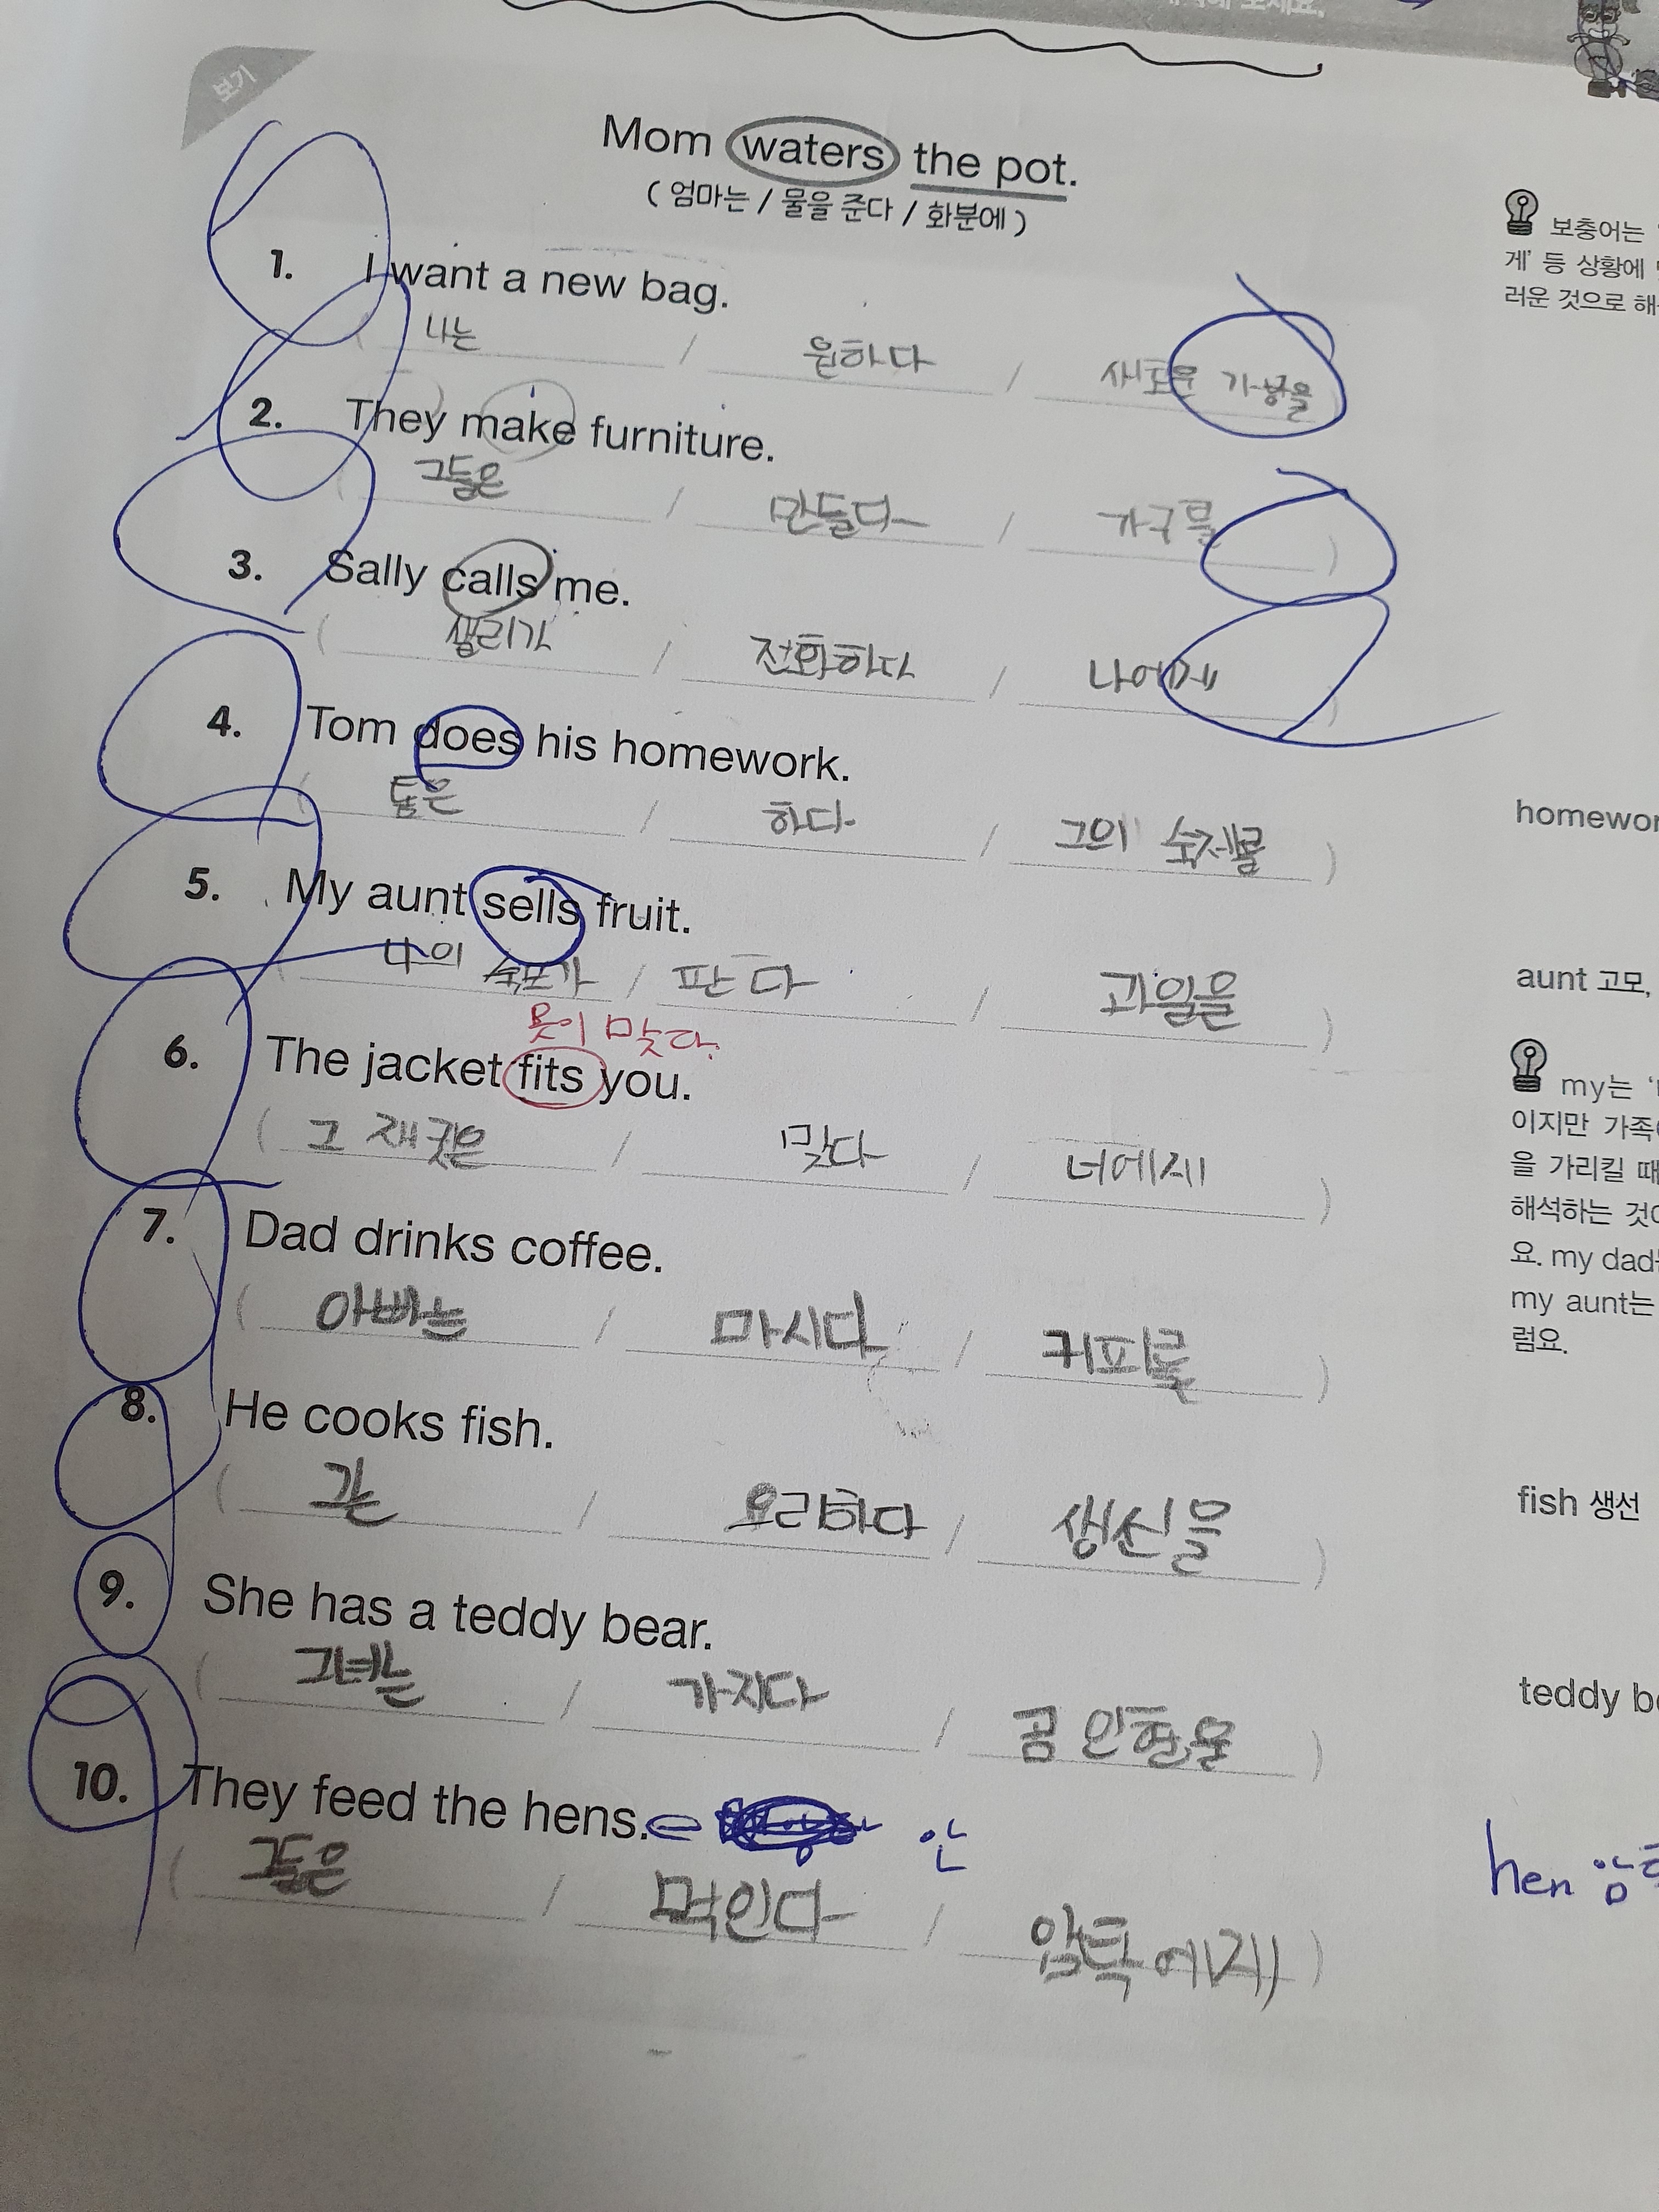 보기
Mom waters the pot.
( 엄마는 / 물을 준다 / 화분에 )
보충어는 '
게' 등 상황에
러운 것으로 해
1. I want a new bag.
( 나는 / 원하다 / 새로운 가방을
2. They make furniture.
( 그들은 / 만들다 / 가구를 )
3. Sally calls me.
( 샐리가 / 전화하다 / 나에게 )
4. Tom does his homework.
( 톰은 / 하다 / 그의 숙제를 )
homewor
5. My aunt sells fruit.
( 나의 숙모가 / 판다 / 과일을 )
aunt 고모,
옷이 맞다.
6. The jacket fits you.
( 그 재킷은 / 맞다 / 너에게 )
my는 '
이지만 가족
을 가리킬 때
해석하는 것
요. my dad
my aunt는
럼요.
7. Dad drinks coffee.
( 아빠는 / 마시다 / 커피를 )
8. He cooks fish.
( 그는 / 요리하다 / 생선을 )
fish 생선
9. She has a teddy bear.
( 그녀는 / 가지다 / 곰 인형을 )
teddy be
10. They feed the hens.
( 그들은 / 먹인다 / 암탉에게 )
hen 암